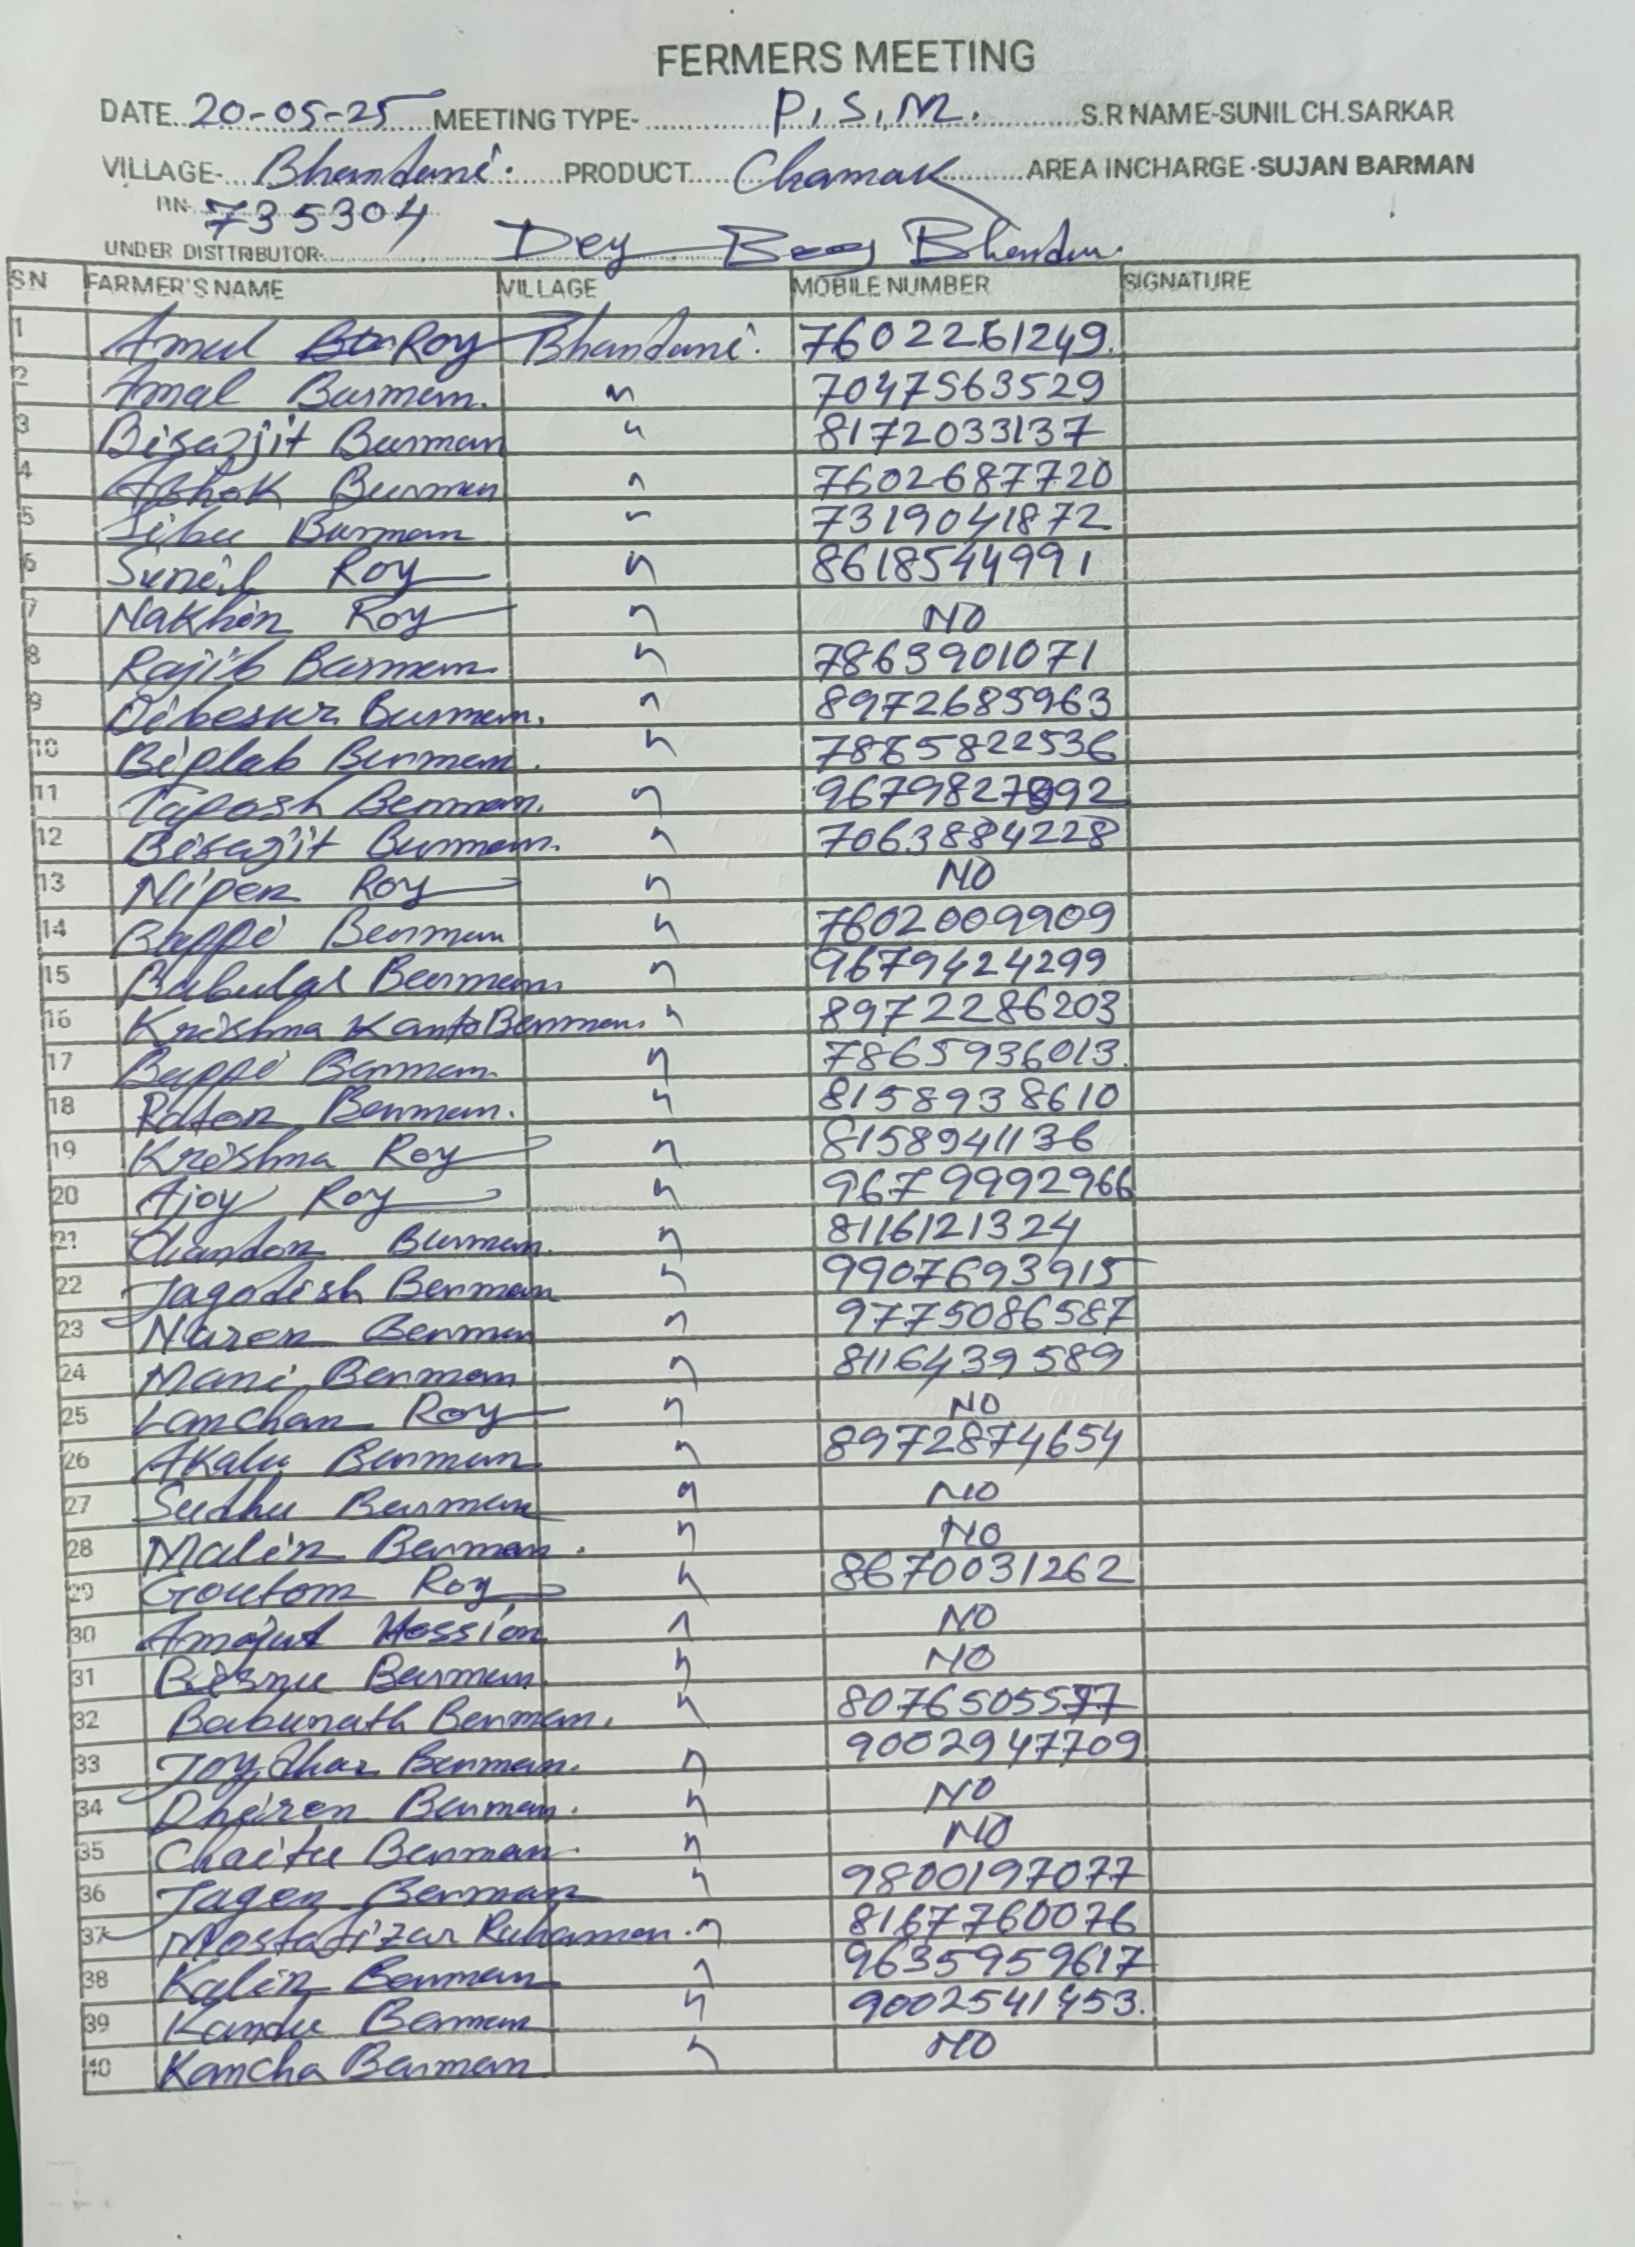 FERMERS MEETING
DATE. 20-05-25 MEETING TYPE- P.S.M. S.R NAME-SUNIL CH.SARKAR
VILLAGE- Bhandani. PRODUCT Chamak AREA INCHARGE -SUJAN BARMAN
PIN- 735304
UNDER DISTTRIBUTOR- Dey Beej Bhandar.
SN FARMER'S NAME VILLAGE MOBILE NUMBER SIGNATURE
1 Amul Roy Bhandani. 7602261249.
2 Amal Barman. " 7047563529
3 Bisazjit Barman " 8172033137
4 Ashok Barman " 7602687720
5 Sibu Barman " 7319041872
6 Suneil Roy " 8618544991
7 Nakhin Roy " NO
8 Rajib Barman " 7863901071
9 Dibesur Barman. " 8972685963
10 Biplab Barman. " 7865822536
11 Taposh Barman. " 9679827892
12 Bisazjit Barman. " 7063884228
13 Nipen Roy " NO
14 Bappi Barman " 7602009909
15 Babulal Barman " 9679424299
16 Krishna Kanto Barman. " 8972286203
17 Bappi Barman " 7865936013.
18 Raton Barman. " 8158938610
19 Krishna Roy " 8158941136
20 Ajoy Roy " 9679992966
21 Chandon Barman. " 8116121324
22 Jagodish Barman " 9907693915
23 Naren Barman " 9775086587
24 Mani Barman " 8116439589
25 Lamchan Roy " NO
26 Akalu Barman " 8972874654
27 Sudhu Barman " NO
28 Malin Barman. " NO
29 Goutom Roy " 8670031262
30 Amajut Hossion " NO
31 Bisnu Barman. " NO
32 Babunath Barman. " 80765055
33 Joydhar Barman. " 9002947709
34 Dhiren Barman. " NO
35 Chaitu Barman. " NO
36 Jagen Barman " 9800197077
37 Mostafizar Rahaman. " 8167760076
38 Kalin Barman " 9635959617
39 Kandu Barman " 9002541453.
40 Kancha Barman " NO